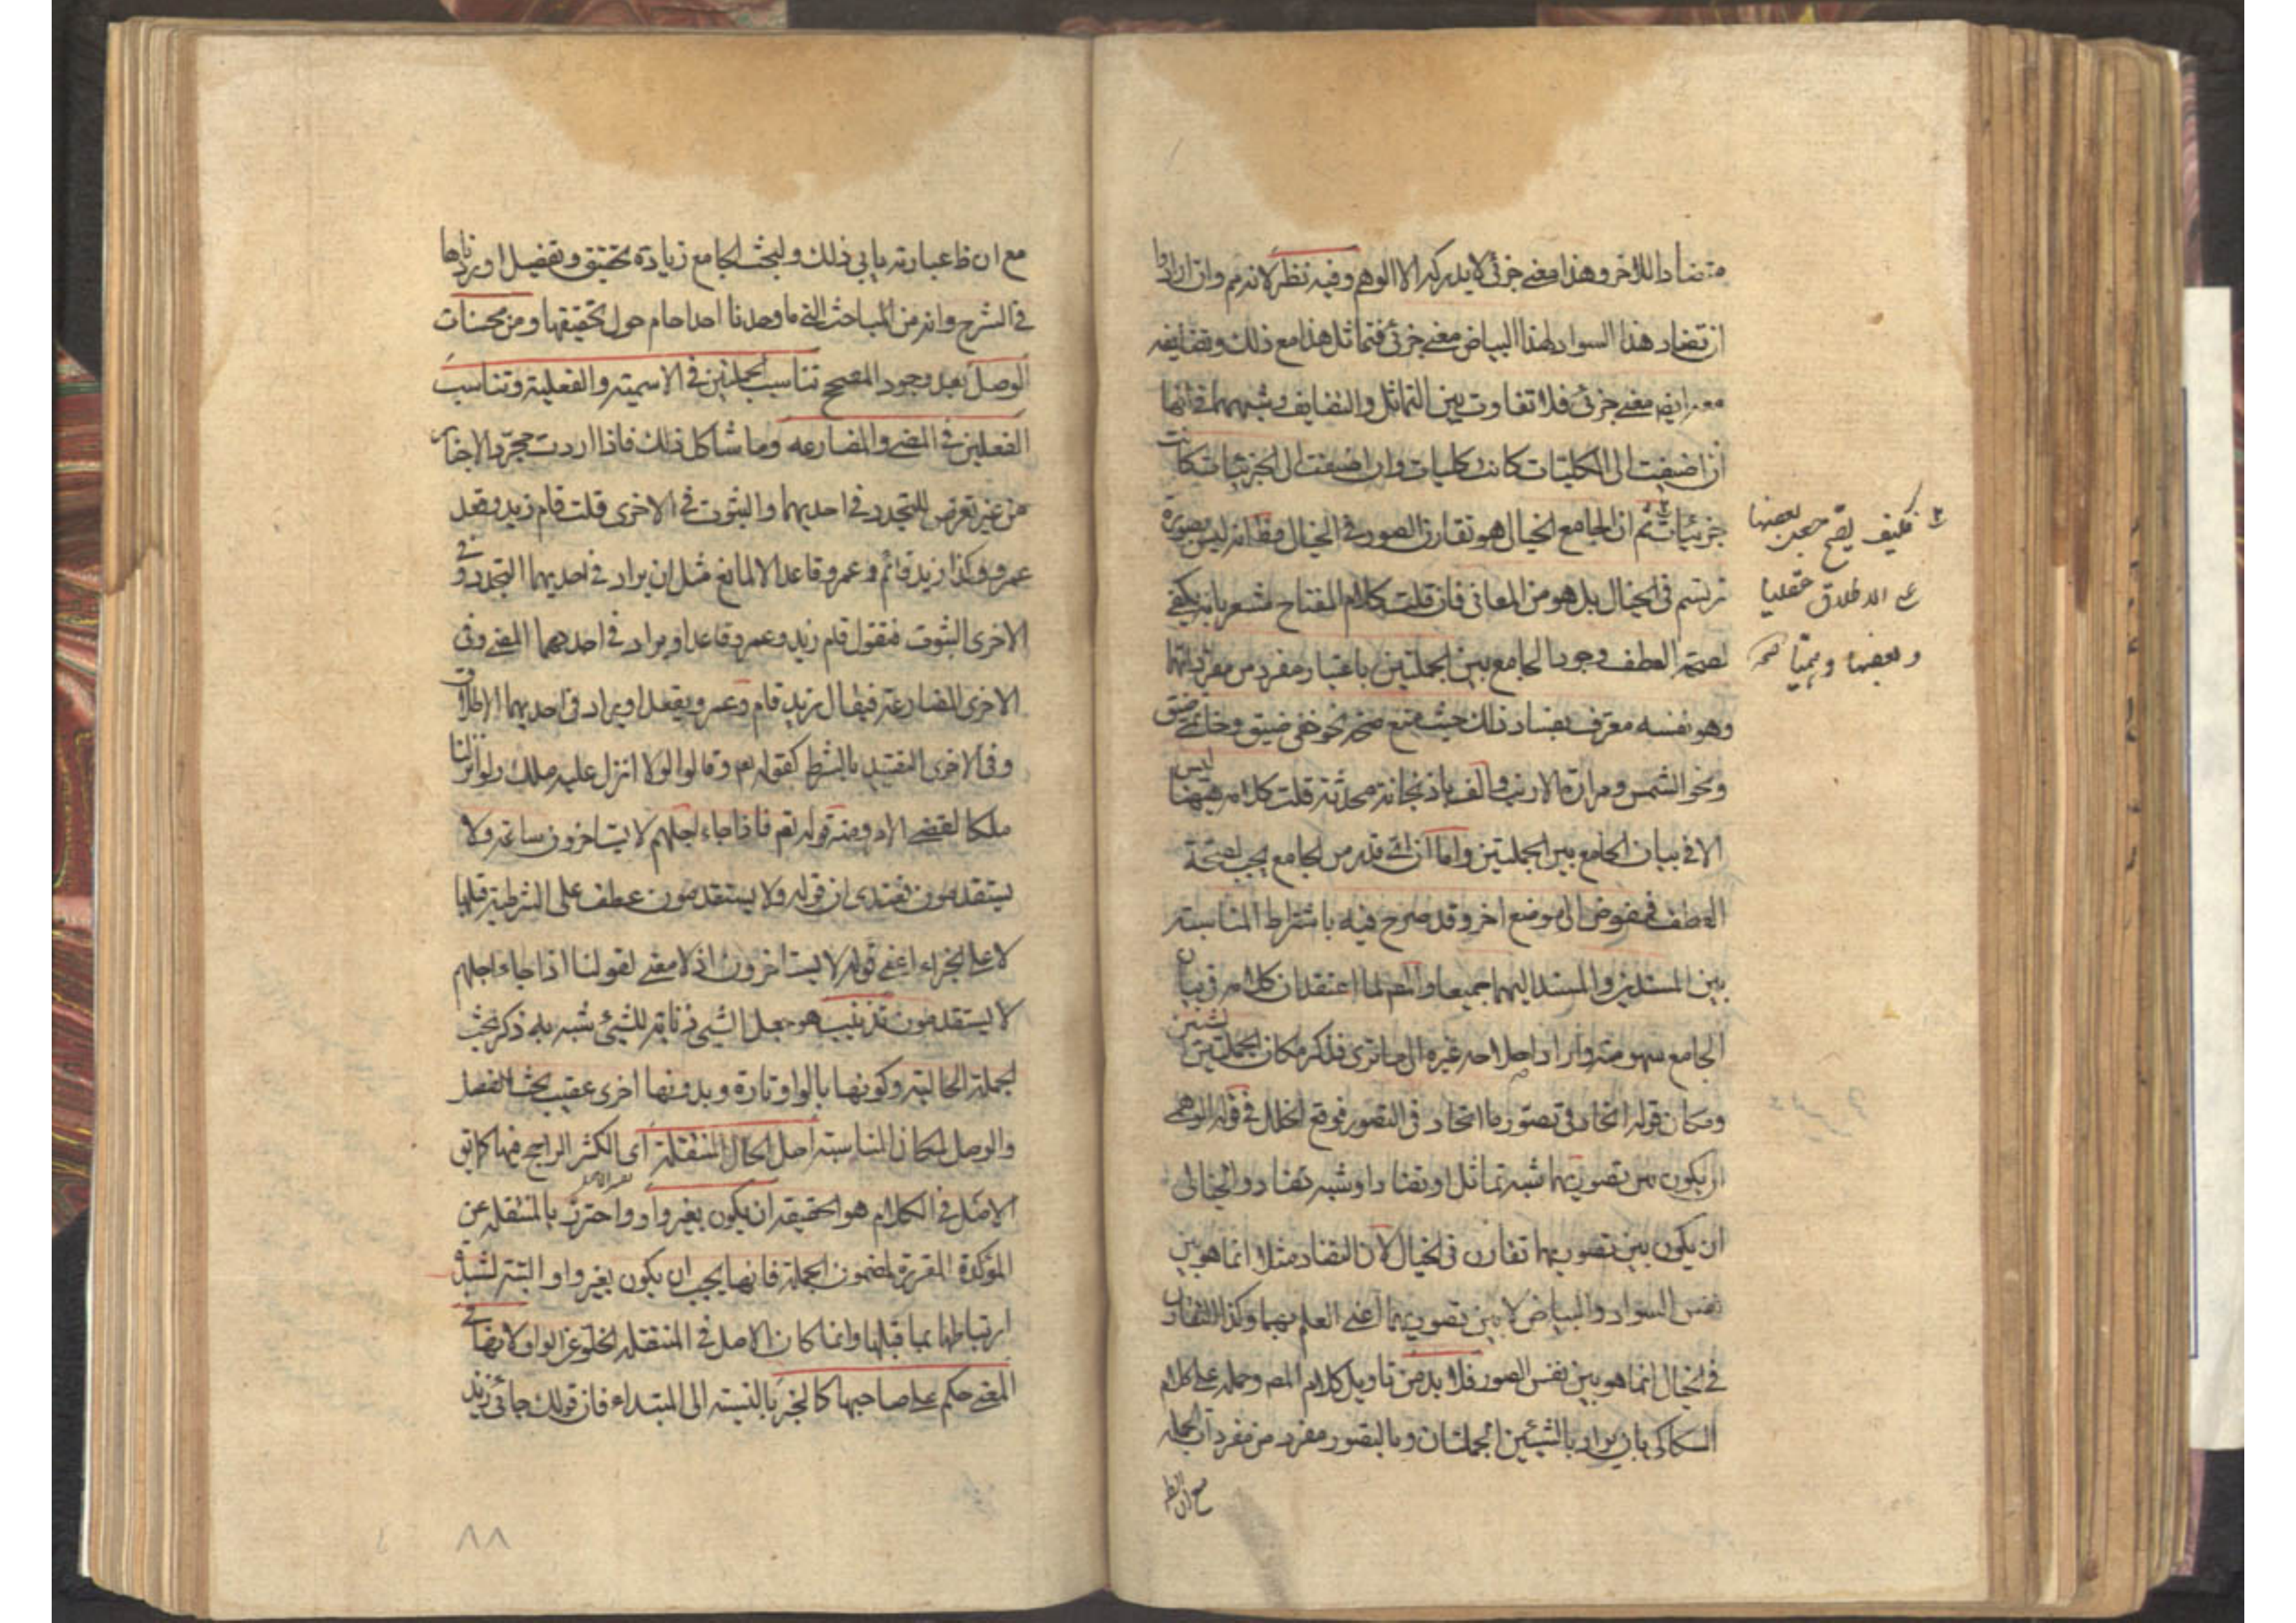 متضادا للاخر وهذا معنے جزئی لا يدركه الا الوهم وفيه نظر لانه مم وان ارادوا
ان تضاد هذا السواد لهذا البياض معنے جزئی فتماثل هذا مع ذلك وتضايفه
معه ايضا معنے جزئی فلا تفاوت بين التماثل والتضايف وشبههما فانها
ان اضيفت الى الكليات كانت كليات وان اضيفت الى الجزئيات كانت
جزئيات ثم ان الجامع الخيالی هو تقارن الصور فی الخيال وظ انه ليس بصورة
ترتسم فی الخيال بل هو من المعانی فان قلت كلام المفتاح مشعر بانه يكفی
لصحة العطف وجود الجامع بين الجملتين باعتبار مفرد من مفرداتهما
وهو نفسه معترف بفساد ذلك حيث منع صحة نحو خفی ضيق وخاتمے ضيق
ونحو الشمس ومرارة الارنب والف باذنجانة محدثة قلت كلامه ههنا ليس
الا فی بيان الجامع بين الجملتين واما ان ای قدر من الجامع يجب لصحة
العطف فمفوض الى موضع اخر وقد صرح فيه باشتراط المناسبة
بين المسندين والمسند اليهما جميعا والمص لما اعتقد ان كلامه فی بيان
الجامع سهو منه واراد اصلاحه غيره الى ما تری فذكر مكان الجملتين الشيئين
ومكان قوله اتحاد فی تصور ما اتحاد فی التصور فوقع الخلل فی قوله الوهمی
ان يكون بين تصوريهما شبه تماثل او تضاد او شبه تضاد والخيالی
ان يكون بين تصوريهما تقارن فی الخيال لان التضاد مثلا انما هو بين
نفس السواد والبياض لا بين تصوريهما اعنی العلم بهما وكذا التقارن
فی الخيال انما هو بين نفس الصور فلا بد من تاويل كلام المص وحمله علی كلام
السكاكی بان يراد بالشيئين الجملتان وبالتصور مفرد من مفردات الجملة
مع ان الظ
فكيف يصح جعل بعضها
علی الاطلاق عقليا
وبعضها وهميا
مع ان ظ عبارته يابی ذلك ولبحث الجامع زيادة تحقيق وتفصيل اوردناها
فی الشرح وانه من المباحث التی ما وجدنا احدا حام حول تحقيقها ومن محسنات
الوصل بعد وجود المصحح تناسب الجملتين فی الاسمية والفعلية وتناسب
الفعليتين فی المضے والمضارعه وما شاكل ذلك فاذا اردت مجرد الاخبار
من غير تعرض للتجدد فی احديهما والثبوت فی الاخری قلت قام زيد وقعد
عمرو وكذا زيد قائم وعمرو قاعد الا لمانع مثل ان يراد فی احديهما التجدد وفی
الاخری الثبوت فتقول قام زيد وعمرو قاعد او يراد فی احدهما المضے وفی
الاخری المضارعة فيقال زيد قام وعمرو يقعد او يراد فی احديهما الاطلاق
وفی الاخری التقييد بالشرط كقوله تعم وقالوا لولا انزل عليه ملك ولو انزلنا
ملكا لقضے الامر ومنه قوله تعم فاذا جاء اجلهم لا يستاخرون ساعة ولا
يستقدمون فعندی ان قوله ولا يستقدمون عطف علی الشرطية قبلها
لا علی الجزاء اعنی قوله لا يستاخرون اذ لا معنے لقولنا اذا جاء اجلهم
لا يستقدمون تذنيب هو جعل الشیء ذنابة للشیء شبه به ذكر بحث
الجملة الحالية وكونها بالواو تارة وبدونها اخری عقيب بحث الفصل
والوصل لمكان المناسبة اصل الحال المنتقلة ای الكثير الراجح فيها كما يق
الاصل فی الكلام هو الحقيقة ان يكون بغير واو واحترز بالمنتقله عن
المؤكدة المقررة لمضمون الجملة فانها يجب ان يكون بغير واو البتة لشدة
ارتباطها بما قبلها وانما كان الاصل فی المنتقله الخلو عن الواو لانها فی
المعنے حكم علی صاحبها كالخبر بالنسبة الى المبتداء فان قولك جائنی زيد
٨٨